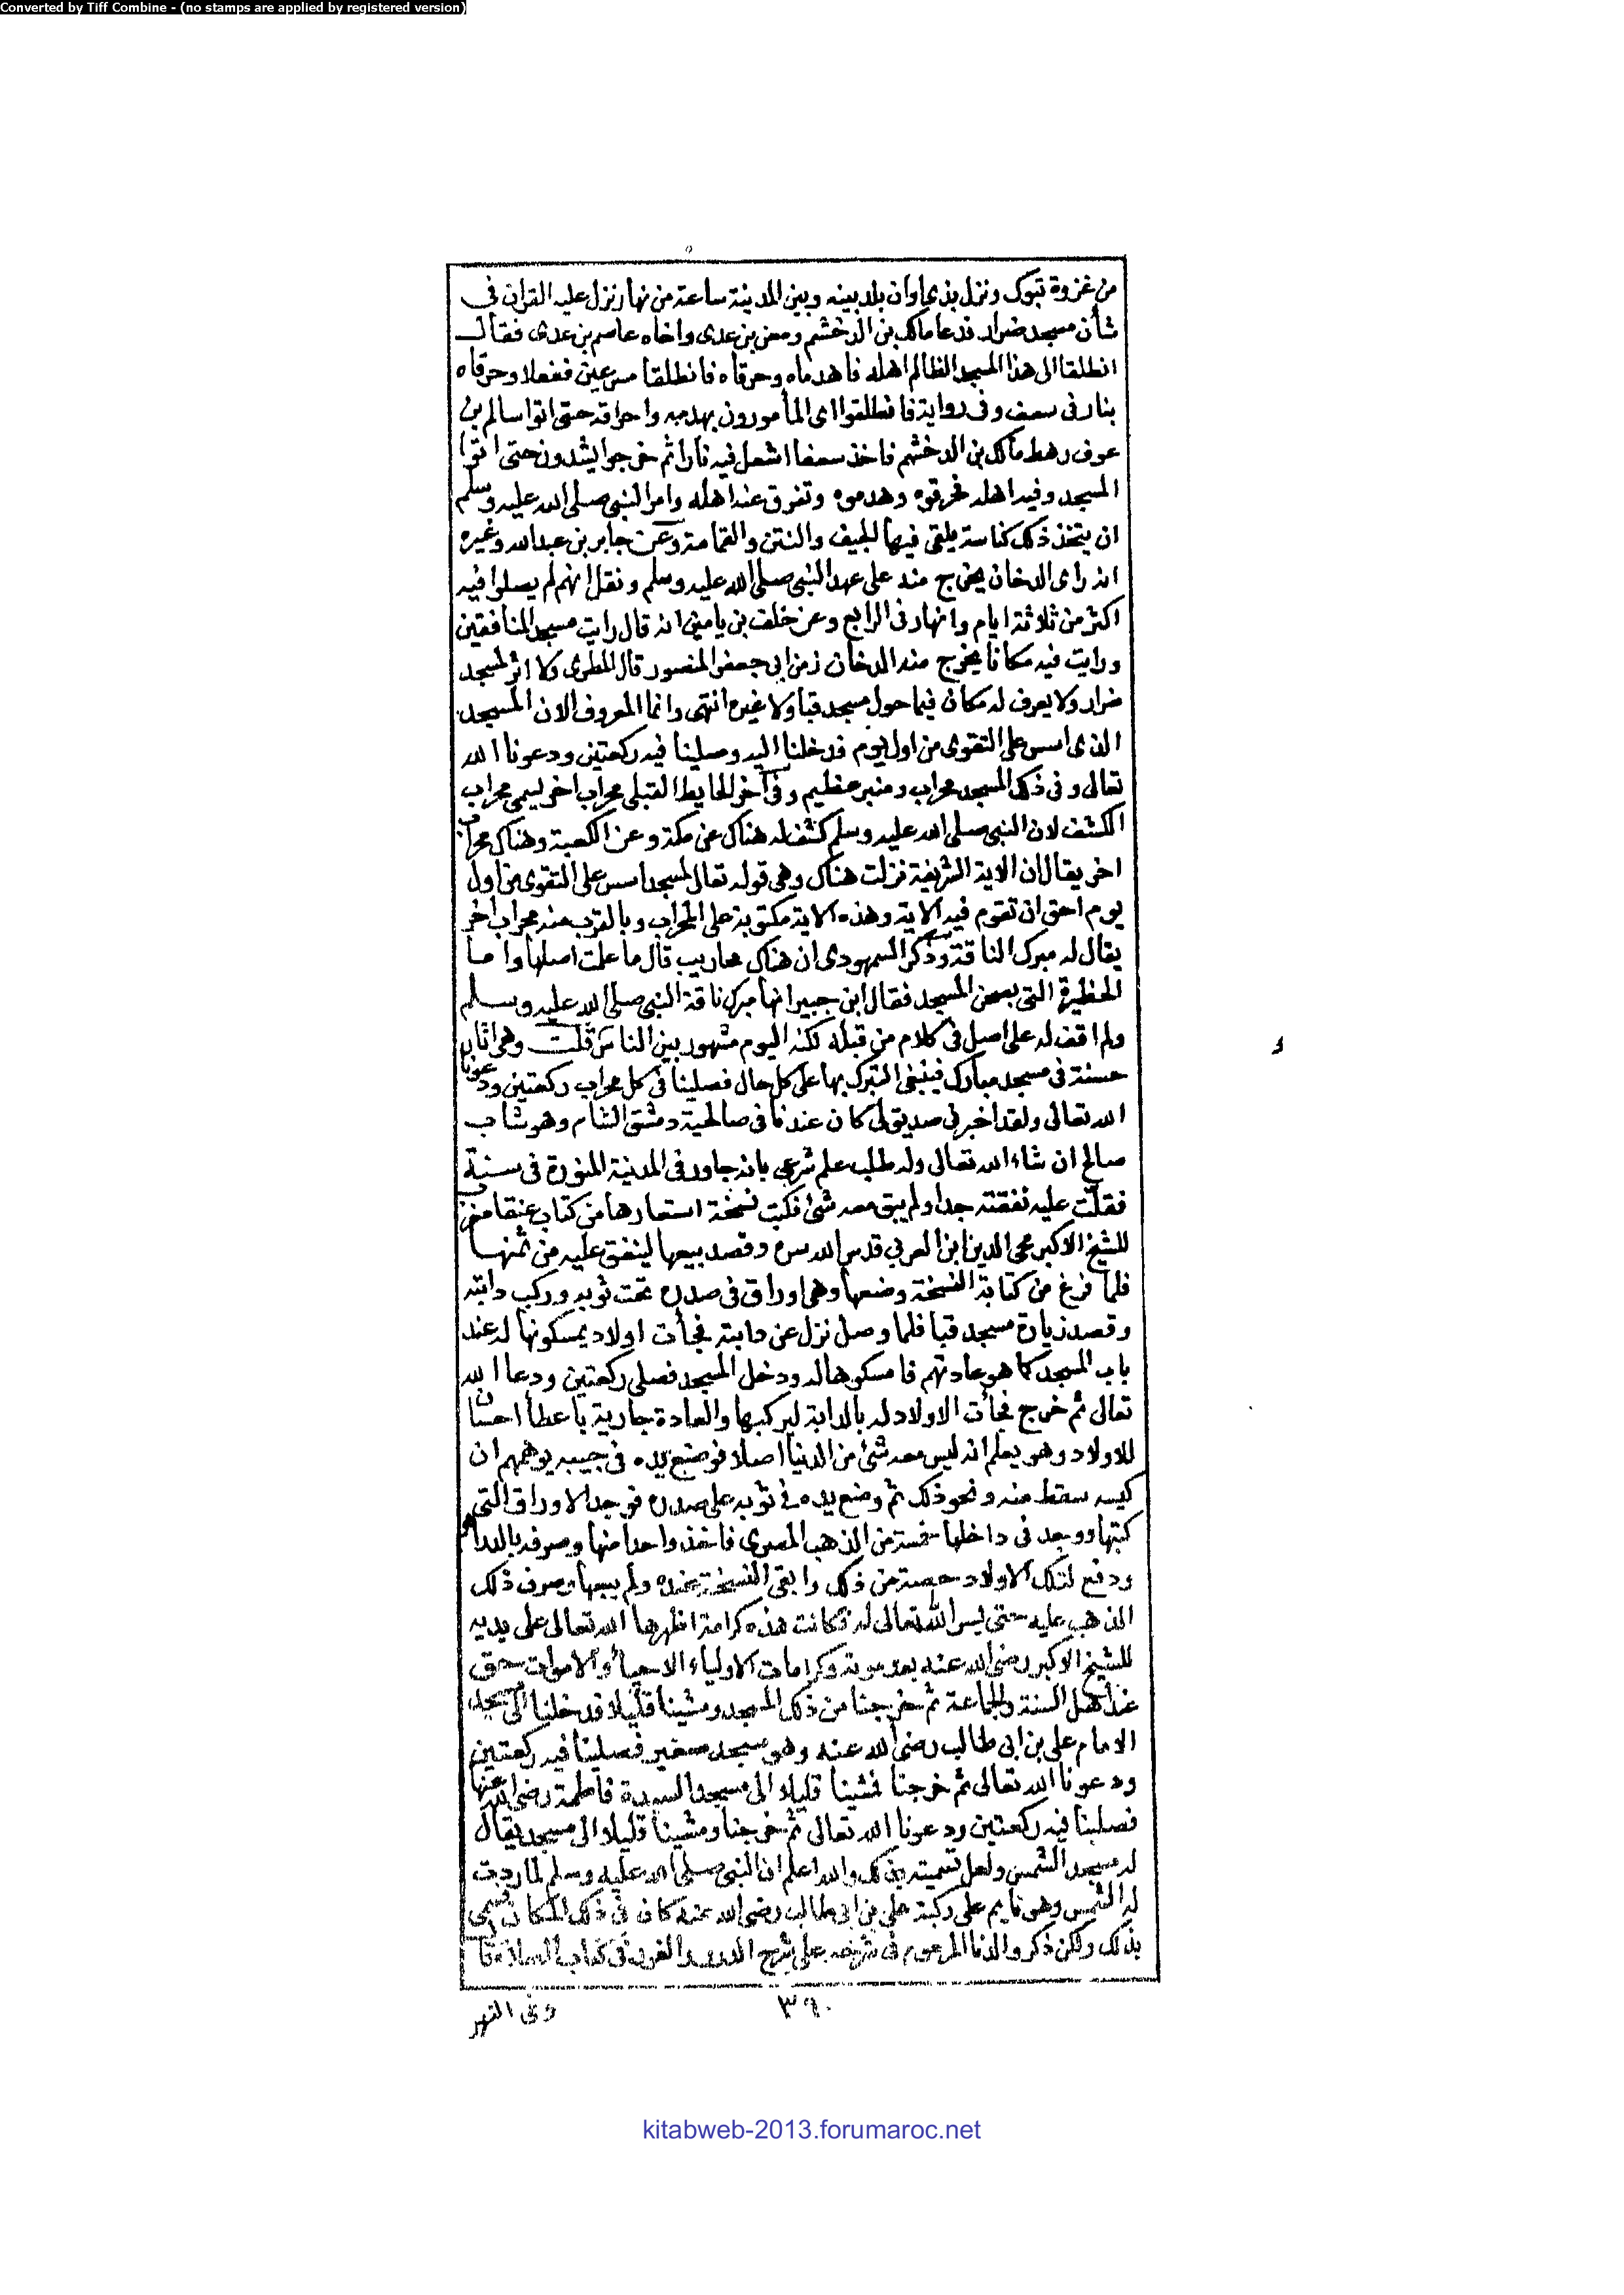 Converted by Tiff Combine - (no stamps are applied by registered version)
من غزوة تبوك ونزل بذي اوان بلد بينه وبين المدينة ساعة من نهار نزل عليه القران في
شأن مسجد ضرار فدعا مالك بن الدخشم ومعن بن عدى واخاه عاصم بن عدى فقال
انطلقا الى هذا المسجد الظالم اهله فاهدماه وحرقاه فانطلقا مسرعين ففعلا وحرقاه
بنار في سعف وفى رواية فانطلقوا اى المأمورون بهدمه واحراقه حتى اتوا سالم بن
عوف رهط مالك بن الدخشم فاخذ سعفا اشعل فيه نارا ثم خرجوا يشدون حتى اتوا
المسجد وفيه اهله فحرقوه وهدموه وتفرق عنه اهله وامر النبي صلى الله عليه وسلم
ان يتخذ ذلك كناسة يلقى فيها الجيف والنتن والقمامة وعن جابر بن عبدالله وغيره
انه راى الدخان يخرج منه على عهد النبي صلى الله عليه وسلم ونقل انهم لم يصلوا فيه
اكثر من ثلاثة ايام وانهار في الرابع وعن خلف بن يامين انه قال رايت مسجد المنافقين
ورايت فيه مكانا يخرج منه الدخان زمن ابي جعفر المنصور قال المطرى ولا اثر لمسجد
ضرار ولا يعرف له مكان فيما حول مسجد قبا ولا غيره انتهى وانما المعروف الان المسجد
الذى اسس على التقوى من اول يوم فدخلنا اليه وصلينا فيه ركعتين ودعونا الله
تعالى وفى ذلك المسجد محراب ومنبر عظيم وفى آخر الحايط القبلى محراب اخر يسمى محراب
الكشف لان النبي صلى الله عليه وسلم كشف له هناك عن مكة وعن الكعبة وهناك محراب
اخر يقال ان الاية الشريفة نزلت هناك وهى قوله تعالى لمسجد اسس على التقوى من اول
يوم احق ان تقوم فيه الاية وهذه الاية مكتوبة على المحراب وبالقرب منه محراب اخر
يقال له مبرك الناقة وذكر السمهودى ان هناك محاريب قال ما علمت اصلها واما
الحظيرة التى بصحن المسجد فقال ابن جبير انها مبرك ناقة النبي صلى الله عليه وسلم
ولم اقف له على اصل في كلام من قبله لكنه اليوم مشهور بين الناس قلت وهى اثار
حسنة في مسجد مبارك فينبغى التبرك بها على كل حال فصلينا في كل محراب ركعتين ودعونا
الله تعالى ولقد اخبرني صديق لى كان عندنا في صالحية دمشق الشام وهو شاب
صالح ان شاء الله تعالى وله طلب علم شرعي بانه جاور في المدينة المنورة في سنة
فقلت عليه نفقته جدا ولم يبق معه شئ فكتب نسخة استعارها من كتاب عنقا مغرب
للشيخ الاكبر محي الدين ابن العربي قدس الله سره وقصد بيعها لينفق عليه من ثمنها
فلما فرغ من كتابة النسخة وضعها وهى اوراق في صدره تحت ثوبه وركب دابته
وقصد زيارة مسجد قبا فلما وصل نزل عن دابته فجأت اولاد يمسكونها له عند
باب المسجد كما هو عادتهم فامسكوها له ودخل المسجد فصلى ركعتين ودعا الله
تعالى ثم خرج فجأت الاولاد له بالدابة ليركبها والعادة جارية باعطأ احسان
للاولاد وهو يعلم انه ليس معه شئ من الدنيا اصلا فوضع يده في جيبه يوهمهم ان
كيسه سقط منه ونحو ذلك ثم وضع يده في ثوبه على صدره فوجد الاوراق التى
كتبها ووجد في داخلها خمسة من الذهب المصرى فاخذ واحدا منها وصرفه بالدراهم
ودفع لتلك الاولاد حصة من ذلك وابقى النسخة عنده ولم يبعها وصرف ذلك
الذهب عليه حتى يسر الله تعالى له فكانت هذه كرامة اظهرها الله تعالى على يديه
للشيخ الاكبر رضى الله عنه بعد موته وكرامات الاولياء الاحيأ والاموات حق
عند اهل السنة والجماعة ثم خرجنا من ذلك المسجد ومشينا قليلا فدخلنا الى مسجد
الامام على بن ابى طالب رضى الله عنه وهو مسجد صغير فصلينا فيه ركعتين
ودعونا الله تعالى ثم خرجنا فمشينا قليلا الى مسجد السيدة فاطمة رضى الله عنها
فصلينا فيه ركعتين ودعونا الله تعالى ثم خرجنا ومشينا قليلا الى مسجد يقال
له مسجد الشمس ولعل تسميته بذلك والله اعلم ان النبي صلى الله عليه وسلم لما ردت
له الشمس وهو نايم على ركبة على بن ابى طالب رضى الله عنه كان في ذلك المكان فسمى
بذلك ولكن ذكر والدنا المرحوم في شرحه على شرح الدرر والغرر في كتاب الصلاة قا
٣٦٠
وفى النهر
kitabweb-2013.forumaroc.net